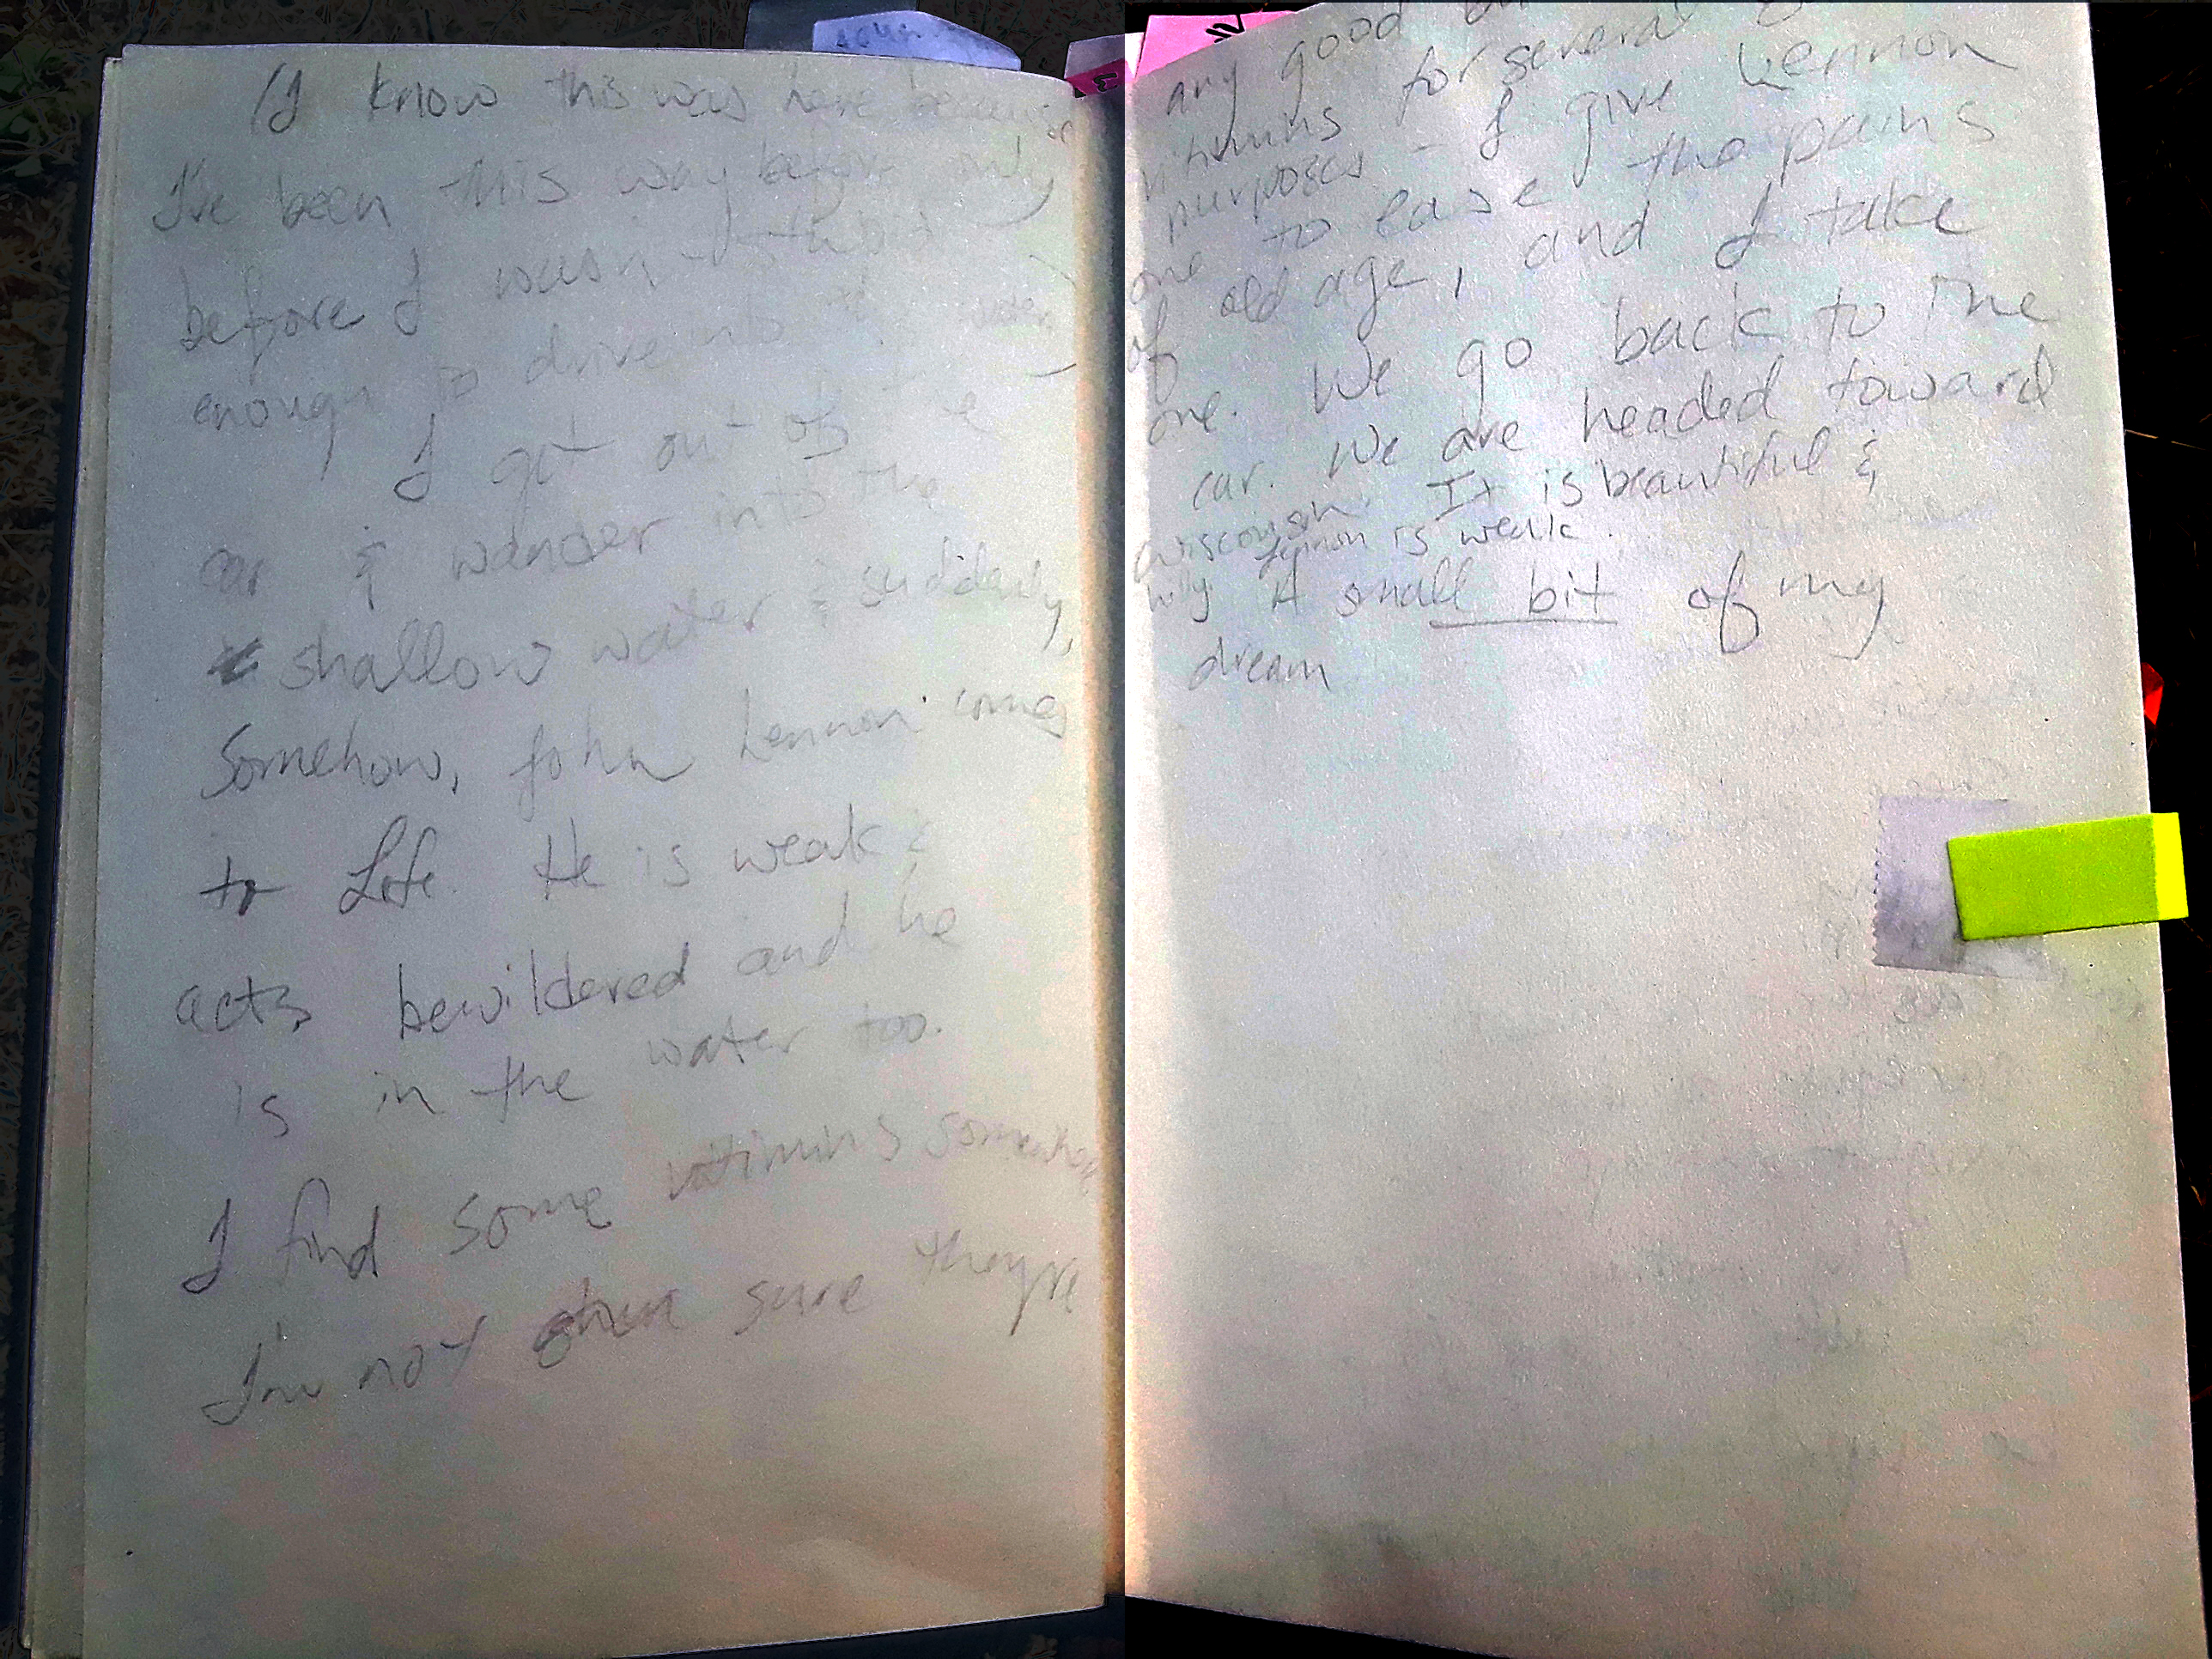 (I know this was here because
I've been this way before only
before I wasn't stupid
enough to drive into the water)
I get out of the
car & wander into the
shallow water & suddenly,
Somehow, John Lennon comes
to Life. He is weak &
acts bewildered and he
is in the water too.
I find some vitimins somewhere
I'm not even sure they're
any good
vitimins for several
purposes - I give Lennon
one to ease the pains
of old age, and I take
one. We go back to the
car. We are headed toward
wisconsin. It is beautiful &
hilly Lennon is weak.
A small bit of my
dream